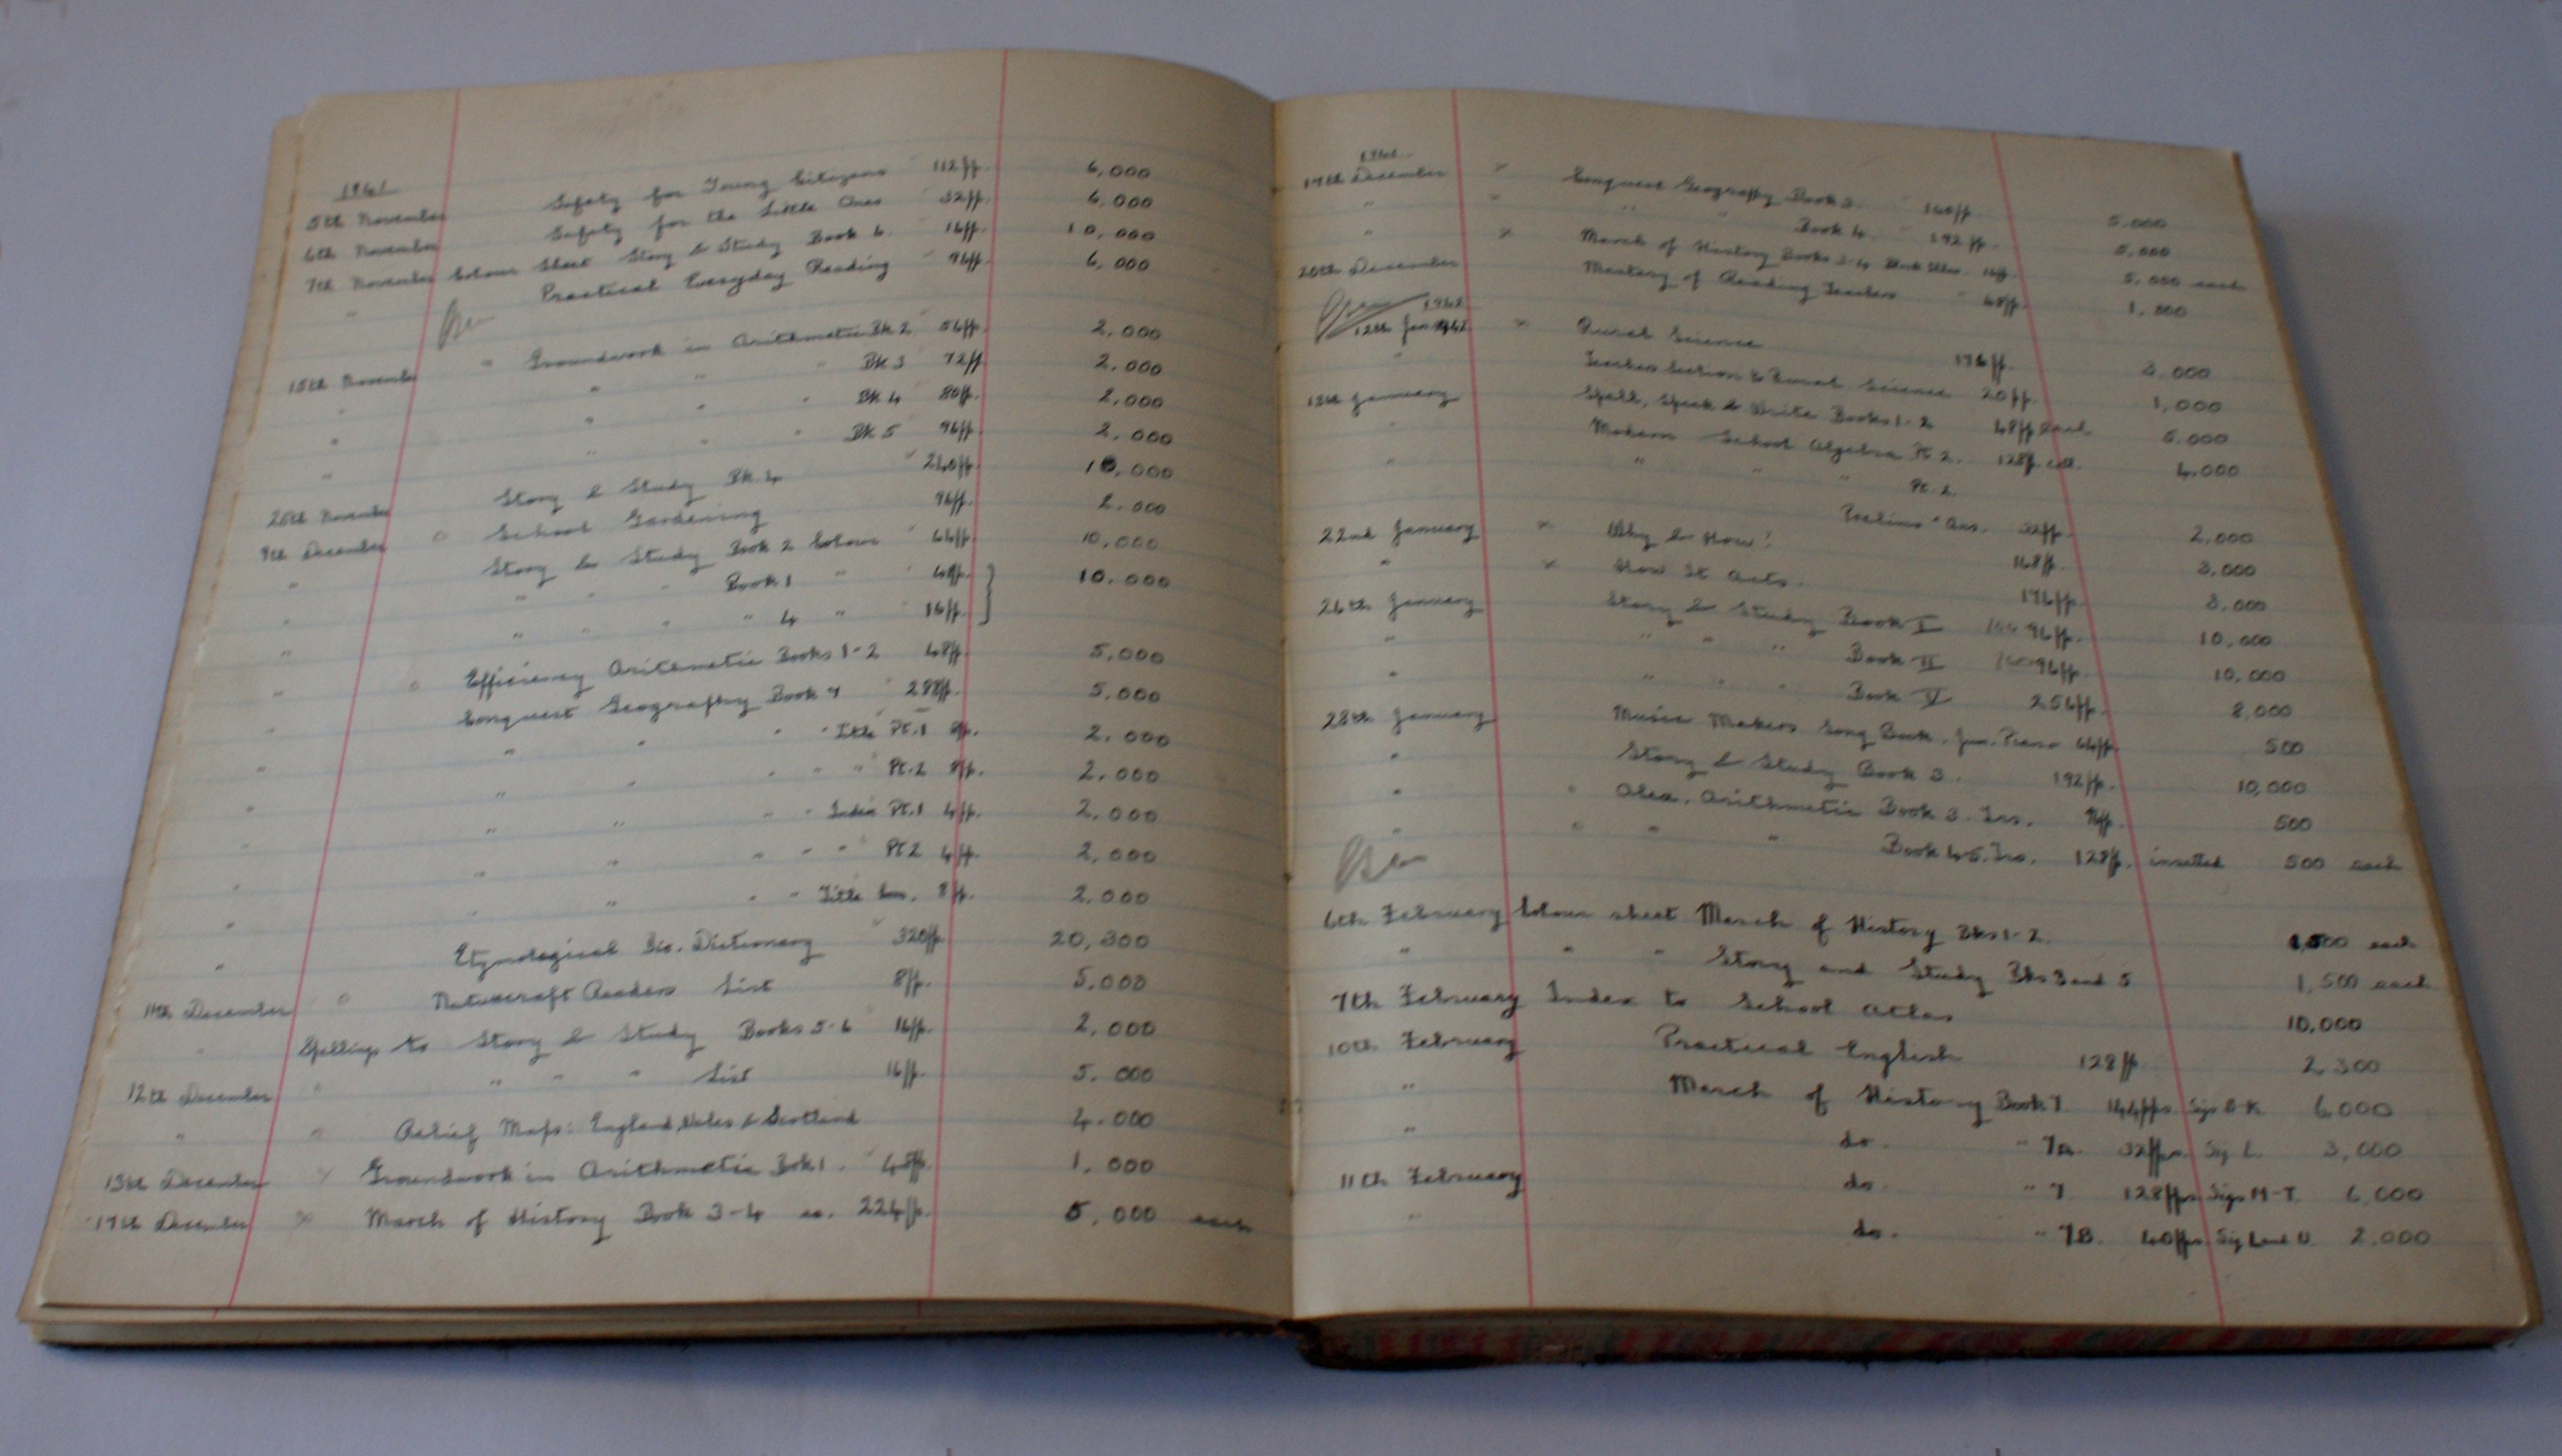 1961
5th November Safety for Young Citizens 112pp. 6,000
6th November Safety for the Little Ones 32pp. 6,000
7th November Colour Sheet Story & Study Book 6 16pp. 10,000
" Practical Everyday Reading 96pp. 6,000
15th November " Groundwork in Arithmetic Bk 2 56pp. 2,000
" " " " Bk 3 72pp. 2,000
" " " " Bk 4 80pp. 2,000
" " " " Bk 5 96pp. 2,000
Story & Study Bk. 4 240pp. 10,000
9th December School Gardening 96pp. 2,000
" Story & Study Book 2 Colour 64pp. 10,000
" " " " Book 1 " 48pp. 10,000
" " " " " 4 " 16pp.
" Efficiency Arithmetic Books 1-2 48pp. 5,000
" Conquest Geography Book 4 288pp. 5,000
" " " " Title Pt. 1 8pp. 2,000
" " " " " Pt. 2 8pp. 2,000
" " " " Index Pt. 1 4pp. 2,000
" " " " " Pt 2 4pp. 2,000
" " " " Title 8pp. 2,000
" Etymological Dictionary 320pp. 20,300
11th December Naturecraft Readers List 8pp. 5,000
" Spellings to Story & Study Books 5-6 16pp. 2,000
12th December " " " " List 16pp. 5,000
" " Relief Maps: England, Wales & Scotland 4,000
13th December Groundwork in Arithmetic Bk 1. 48pp. 1,000
17th December March of History Book 3-4 ea. 224pp. 5,000 each
1961
December Conquest Geography Book 3. 160pp. 5,000
" " " Book 4. 192pp. 5,000
" March of History Books 3-4 16pp. 5,000 each
20th December Mastery of Reading Teachers 48pp. 1,000
1962
12th Jan 1962 Rural Science 176pp. 3,000
" Teachers Section to Rural Science 20pp. 1,000
January Spell, Speak & Write Books 1-2 48pp each 5,000
" Modern School Algebra Pt 2. 128pp. 4,000
" " " " Pt. 2
Ans. 32pp. 2,000
22nd January Why & How? 168pp. 3,000
" How It Acts. 176pp. 3,000
26th January Story & Study Book I 96pp. 10,000
" " " " Book II 96pp. 10,000
" " " " Book V 256pp. 8,000
28th January Music Makers Song Book. Jun. Piano 64pp. 500
" Story & Study Book 3. 192pp. 10,000
" " Alex. Arithmetic Book 3. Trs. 96pp. 500
" " " " Book 4-5. Trs. 128pp. insetted 500 each
6th February Colour sheet March of History Bks 1-2. 1,500 each
" " " Story and Study Bks 3 and 5 1,500 each
7th February Index to School Atlas 10,000
10th February Practical English 128pp. 2,300
" March of History Book 7. 144pps Sigs B-K 6,000
" do. " 7A. 32pps. Sig L. 3,000
11th February do. " 7. 128pps Sigs M-T. 6,000
" do. " 7B. 40pps Sig L and U. 2,000